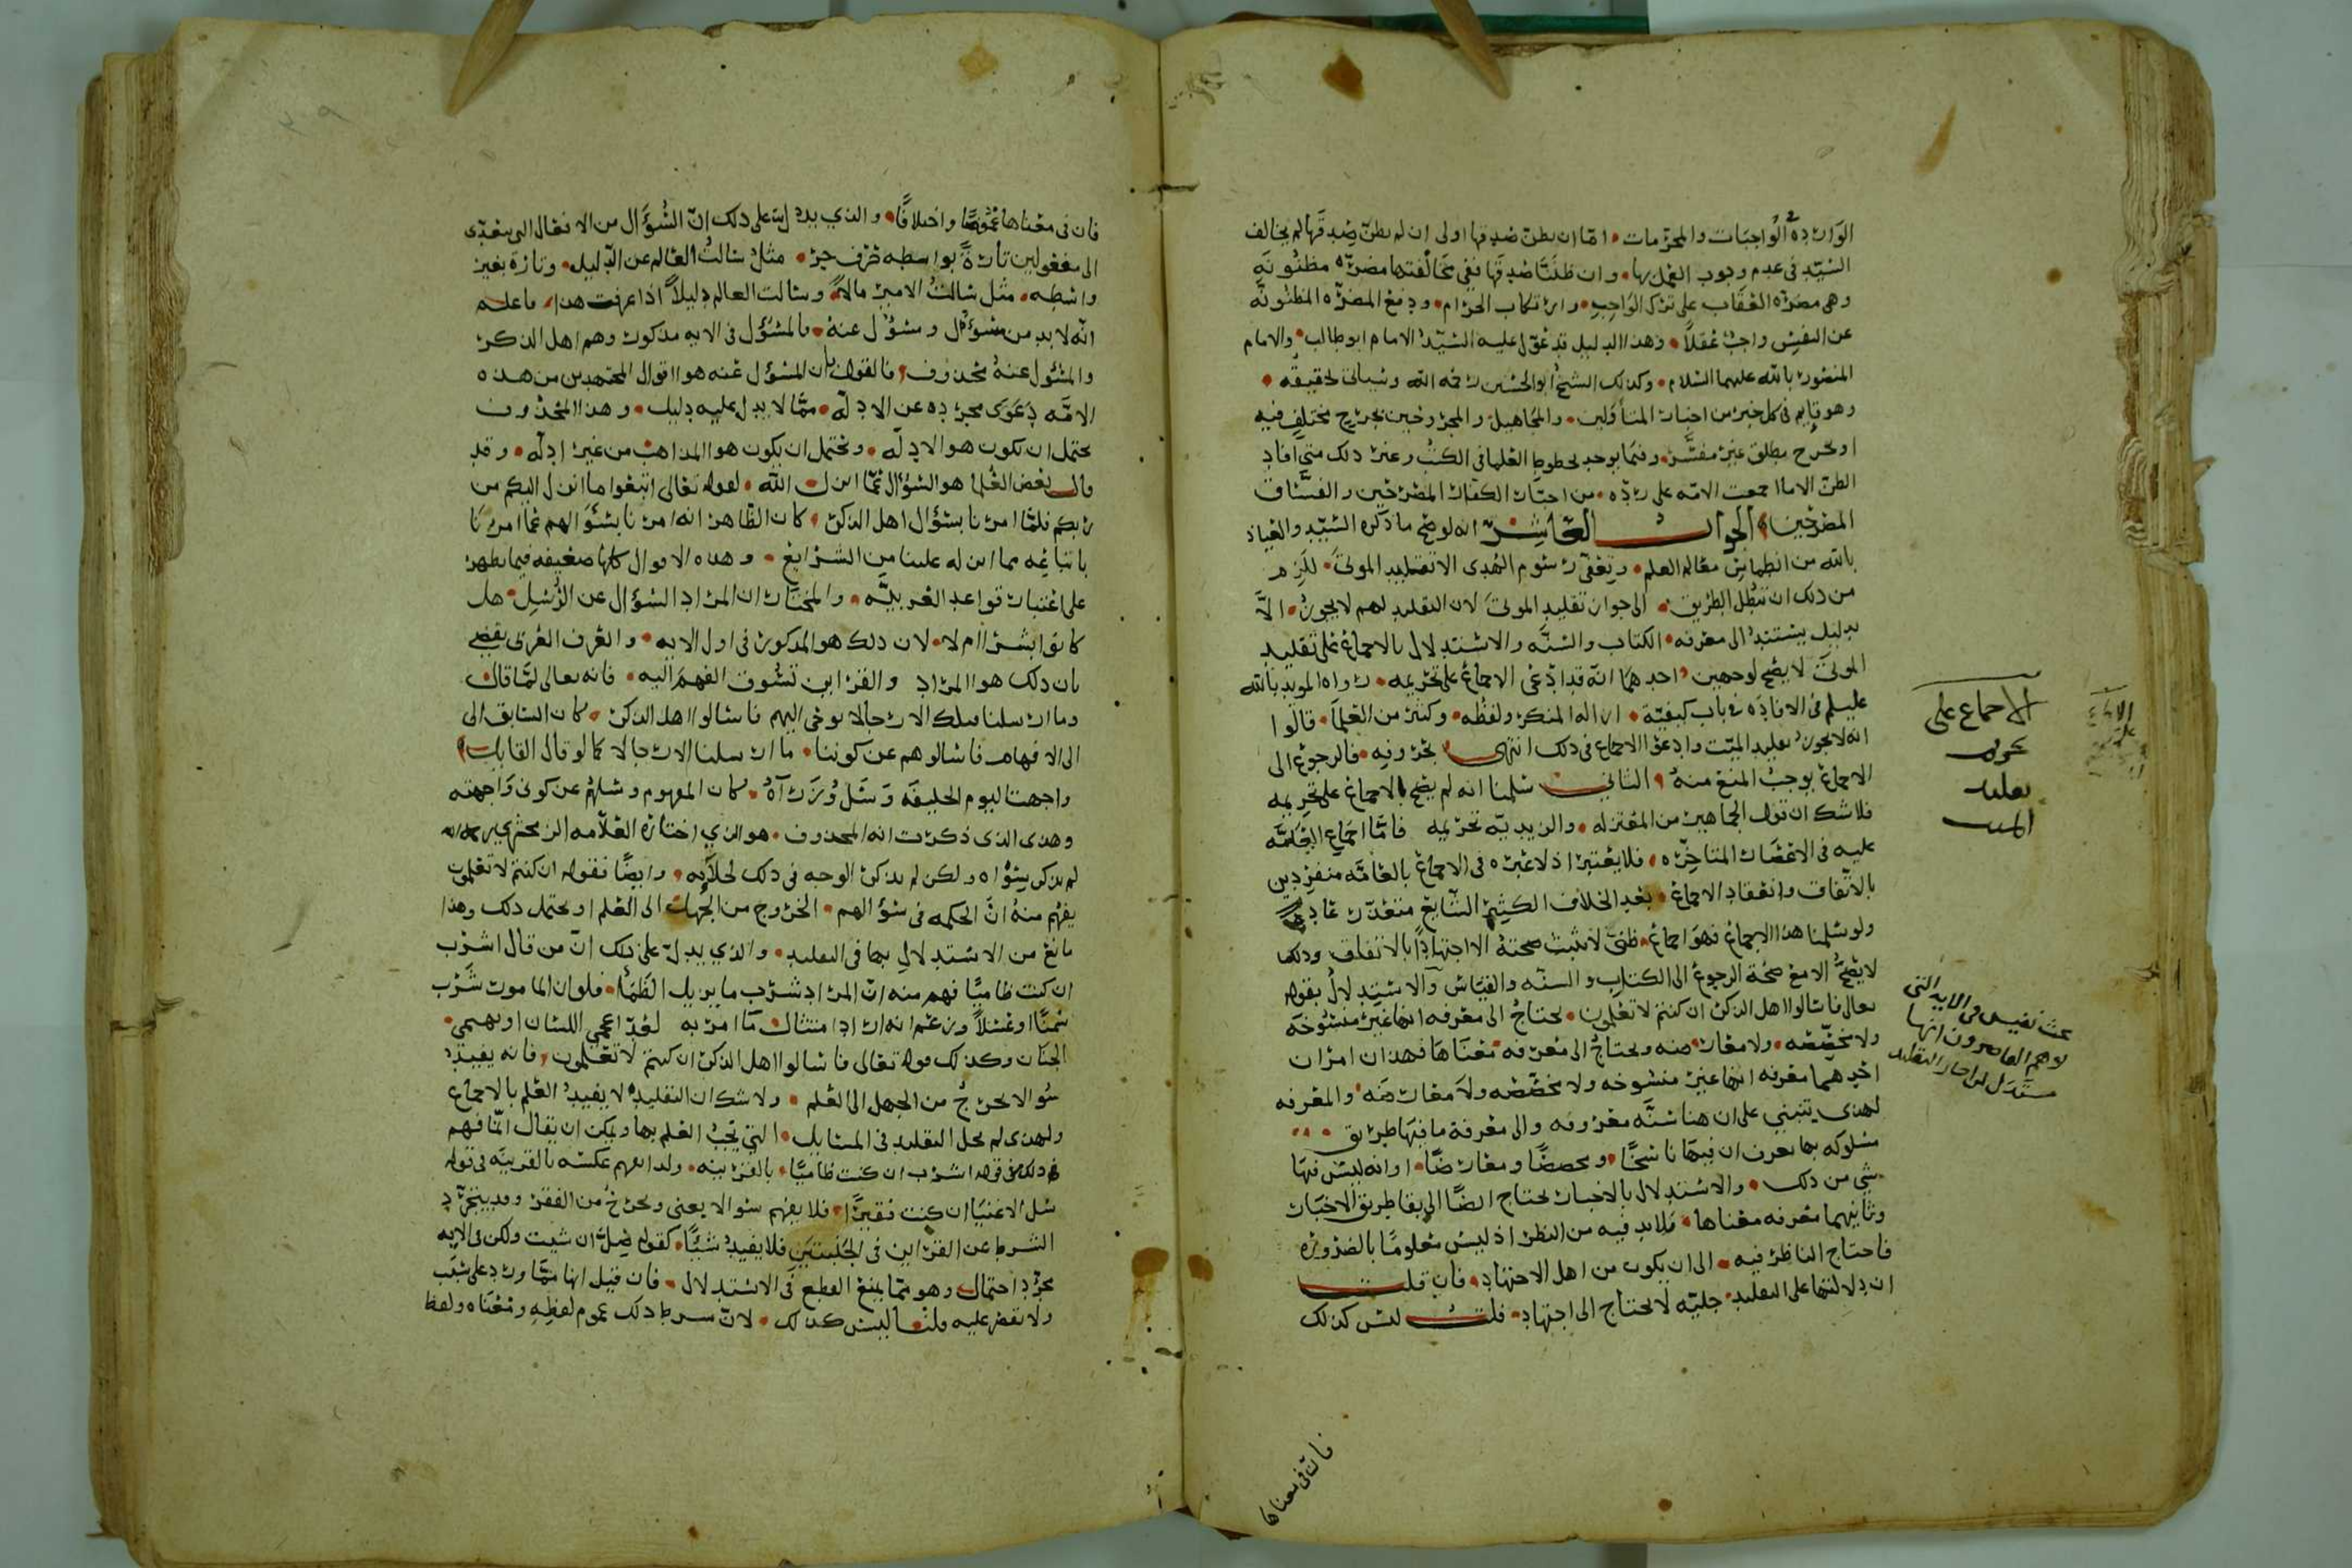 الواردة في الواجبات والمحرمات، اما ان يظن صدقها اولى ان لم يظن صدقها لم يخالف
السّيّد في عدم وجوب العمل بها، وان ظننّا صدقها ففي مخالفتها مضرّه مظنونة
وهي مضرّة العقاب على ترك الواجب، وارتكاب الحرام، ودفع المضرّه المظنونة
عن النفس واجبٌ عقلاً، وهذا الدليل قد عوّل عليه السّيّد الامام ابو طالب، والامام
المنصور بالله عليهما السّلام، وكذلك الشيخ ابو الحسين رحمه الله وسياتي تحقيقه
وهو قايم في كل خبر من اخبار المتأولين، والمجاهيل والمجروحين بجرح مختلف فيه
او بجرح مطلق غير مفسّر، وفيما يوجد بخطوط العلما في الكتب وغير ذلك متى افاد
الظن الا ما اجمعت الامّه على ردّه، من اخبار الكفار المصرّحين والفسّاق
المصرّحين، الجواب العاشر انه لو صح ما ذكره السّيّد والعياذ
بالله من انطماس معالم العلم، وتعفّي رسوم الهدى الا تقليد الموتى، للزم
من ذلك ان تبطل الطريق، الى جواز تقليد الموتى لان التقليد لهم لا يجوز، الاّ
بدليل يستند الى معرفه، الكتاب والسّنّه والاستدلال بالاجماع على تقليد
الموتى لا يصح لوجهين، احدهما انّه قد ادّعى الاجماع على تحريمه، رواه المويد بالله
عليلم في الافاده في باب كيفيّة، ازاله المنكر ولفظه، وكثير من العلما، قالوا
انه لا يجوز تقليد الميّت وادعى الاجماع في ذلك انتهى بحروفه، فالرجوع الى
الاجماع يوجب المنع منه، الثاني سلمنا انه لم يصح الاجماع على تحريمه
فلا شك ان قول الجماهير من المعتزله، والزيديّه تحريمه فامّا اجماع العامّه
عليه في الاعصار المتاخّره، فلا يعتبر اذ لا عبره في الاجماع بالعامّه منفردين
بالاتّفاق وانعقاد الاجماع، بعد الخلاف الكثير الشّايع متعذّر عاده
ولو سلمنا هذا الاجماع فهو اجماع، ظنّي لا تثبت صحّته الا اجتهاداً بالاتفاق وذلك
لا يصحّ الا مع صحّة الرجوع الى الكتاب والسنّه والقياس والاستدلال بقوله
تعالى فاسالوا اهل الذكر ان كنتم لا تعلمون، يحتاج الى معرفه انها غير منسوخه
ولا مخصّصه، ولا معارضه ويحتاج الى معرفه معناها فهذان امران
احدهما معرفه انها غير منسوخه ولا مخصّصه ولا معارضه، والمعرفه
لهذى يتنبني على ان هنا سنّه معروفه والى معرفة ما فيها طريق
مسلوكه بها يعرف ان فيها ناسخاً، ومخصصًا ومعارضًا، او انه ليس فيها
شي من ذلك، والاستدلال بالاخبار يحتاج ايضًا الى بقا طريق الاخبار
وثانيهما معرفه معناها، فلا بد فيه من النظر اذ ليس معلومًا بالضروره
فاحتاج الناظر فيه، الى ان يكون من اهل الاجتهاد، فان قلت
ان دلالتها على التقليد جليّه لا يحتاج الى اجتهاد، قلت ليس كذلك
فان في معناها
الاجماع على
تحريم
تقليد
الميت
بحث نفيس في الايه التي
يستدل بها من اجاز التقليد
فان في معناها غموضًا واختلافًا، والذي يدلّ على ذلك انّ السّؤال من الافعال التي تتعدّى
الى مفعولين تارةً بواسطه حرف جر، مثل سالتُ العالم عن الدّليل، وتارة بغير
واسطه، مثل سالتُ الامير مالاً، وسالت العالم دليلاً اذا عرفت هذا، فاعلم
انّه لا بد من مسؤل ومسؤل عنه، فالمسؤل في الايه مذكور وهم اهل الذكر
والمسئول عنه محذوف، فالقول بان المسؤل عنه هو اقوال المجتهدين من هذه
الامّه دعوى مجرده عن الادلّه، ممّا لا يدل عليه دليل، وهذا المحذوف
يحتمل ان يكون هو الادله، ويحتمل ان يكون هو المذاهب من غير ادله، وقد
قال بعض العلما هو السّؤال عمّا انزل الله، لقوله تعالى اتبعوا ما انزل اليكم من
ربكم فلمّا امرنا بسؤال اهل الذكر، كان الظّاهر انه امرنا بسؤالهم عما امرنا
باتباعه مما انزله علينا من الشرايع، وهذه الاقوال كلها ضعيفه فيما يظهر
على اعتبار قواعد العربيّه، والمختار ان المراد السّؤال عن الرّسل، هل
كانوا بشرا ام لا، لان ذلك هو المذكور في اول الايه، والعرف العربي يقضي
بان ذلك هو المراد والقراين تسوق الفهم اليه، فانه تعالى لمّا قال
وما ارسلنا قبلك الا رجالا نوحي اليهم فاسالوا اهل الذكر، كان السّابق الى
الى الافهام فاسالوهم عن كوننا، ما ارسلنا الا رجالا كما لو قال القايل
واجهت اليوم الخليفه وسَل وُزراه، كان المفهوم وسلهم عن كوني واجهته
وهذى الذي ذكرت انه المحذوف، هو الذي اختاره العلاّمه الزمخشري رحمه الله
لم يذكر سواه ولكن لم يذكر الوجه في ذلك لجلايه، وايضًا فقوله ان كنتم لا تعلمون
يفهم منه انّ الحكمه في سؤالهم، الخروج من الجهل الى العلم او يحتمل ذلك وهذا
مانع من الاستدلال بها في التقليد، والذي يدلّ على ذلك انّ من قال اشرب
ان كنت ظاميًا فهم منه انّ المراد شرب ما يزيل الظما، فلو ان المامور شرب
سمنًا او عسلاً وزعم انه اراد امتثال ما امر به لعدّ اعجمي اللسان او بهيمي
الجنان وكذلك قوله تعالى فاسالوا اهل الذكر ان كنتم لا تعلمون، فانه يفيد
سؤالا يخرج من الجهل الى العلم، ولا شك ان التقليد لا يفيد العلم بالاجماع
ولهذى لم يحل التقليد في المسايل، التي يجب العلم بها ويمكن ان يقال انّما فهم
ذلك من قوله اشرب ان كنت ظاميًا، بالقرينه، ولذا يفهم عكسه بالقرينه في قوله
سل الاغنيا ان كنت فقيرًا، فلا يفهم سؤالا يغني ويخرج من الفقر وقد يتجرّد
الشرط عن القراين في الجنبتين فلا يفيد شيئًا، كقوله صلّ ان شيت ولكن في الايه
مجرّد احتمال، وهو ممّا يمنع القطع في الاستدلال، فان قيل انها ممّا ورد على سبب
ولا تقصر عليه قلنا ليس كذلك، لانّ شرط ذلك عموم لفظه ومعناه ولفظ